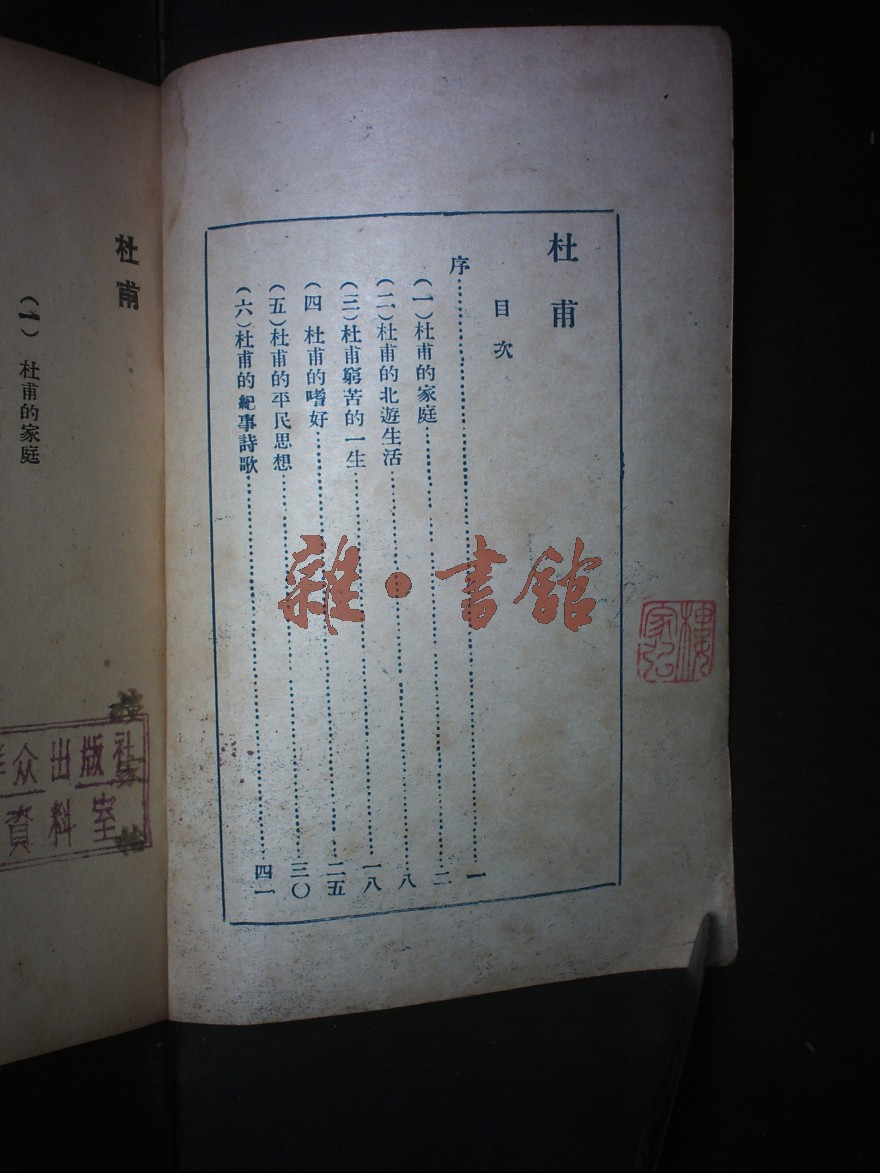 杜甫
目次
序⋯⋯⋯⋯一
(一)杜甫的家庭⋯⋯⋯⋯二
(二)杜甫的北遊生活⋯⋯⋯⋯八
(三)杜甫窮苦的一生⋯⋯⋯⋯一八
(四 杜甫的嗜好⋯⋯⋯⋯二五
(五)杜甫的平民思想⋯⋯⋯⋯三〇
(六)杜甫的紀事詩歌⋯⋯⋯⋯四一
雜·書館
杜甫
(一) 杜甫的家庭
众出版社
資料室